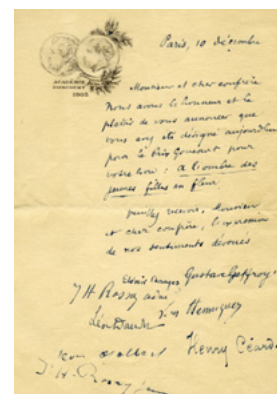 Paris, 10 décembre
ACADÉMIE
GONCOURT
Monsieur et cher confrère
Nous avons l'honneur et le
plaisir de vous annoncer que
vous avez été désigné aujourd'hui
pour le Prix Goncourt pour
votre livre : A l'ombre des
jeunes filles en fleur
Veuillez recevoir, Monsieur
et cher confrère, l'expression
de nos sentiments dévoués
Elémir Bourges Gustave Geffroy
J H Rosny aîné
Léon Daudet Hennique
Henry Céard
J. H. Rosny